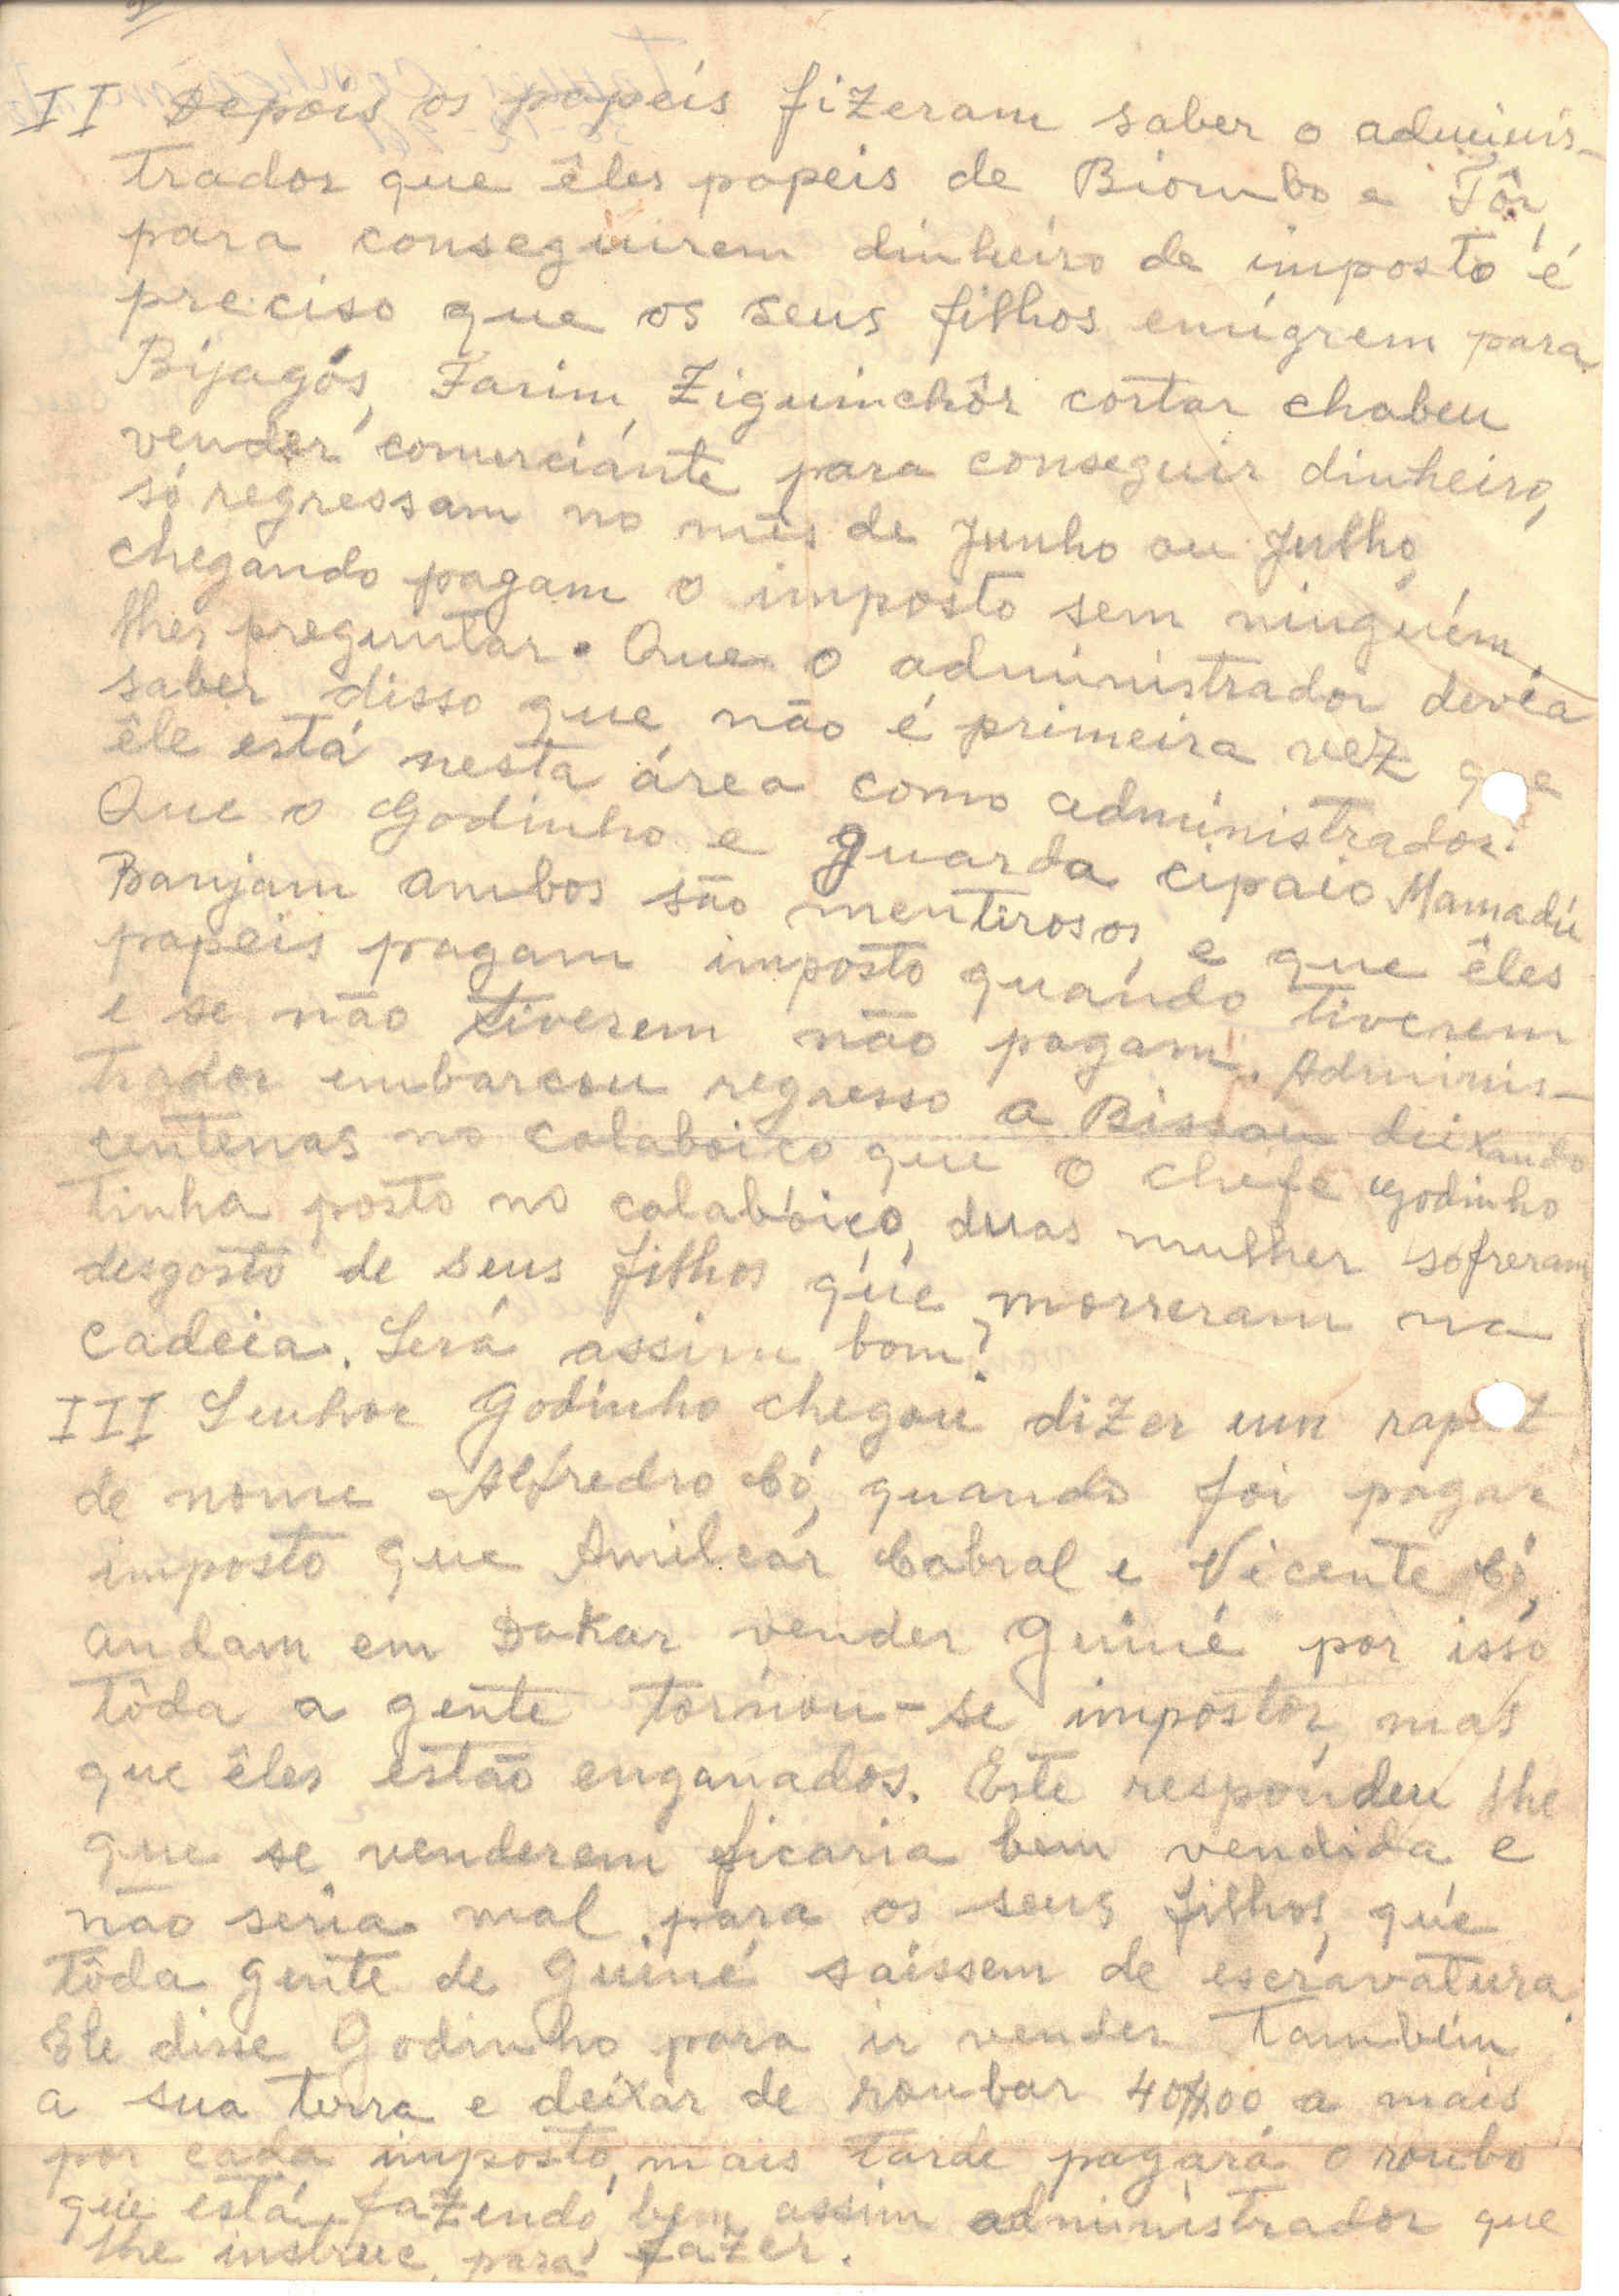 II Depois os papeis fizeram saber o adminis-
trador que êles papeis de Biombo e Tôr,
para conseguirem dinheiro de imposto é
preciso que os seus filhos emigrem para
Bijagós, Farim, Ziguinchôr cortar chabeu
vender comerciante para conseguir dinheiro,
só regressam no mês de Junho ou Julho,
chegando pagam o imposto sem ninguém
lhes preguntar. Que o administrador devia
saber disso que não é primeira vez que
êle está nesta área como administrador.
Que o Godinho e guarda cipaio Mamadú
Banjam ambos são mentirosos, e que êles
papeis pagam imposto quando tiverem
e se não tiverem não pagam. Adminis-
trador embarcou regresso a Bissau deixando
centenas no calaboiço que o chefe Godinho
tinha posto no calaboiço, duas mulher sofreram
desgosto de seus filhos que morreram na
cadeia. Será assim bom?
III Senhor Godinho chegou dizer um rapaz
de nome Alfredro Có, quando foi pagar
imposto que Amilcar Cabral e Vicente Có,
andam em Dakar vender Guiné por isso
tôda a gente tornou-se impostor, mas
que êles estão enganados. Este respondeu lhe
que se venderem ficaria bem vendida e
não seria mal para os seus filhos, que
tôda gente de Guiné saissem de escravatura.
Ele disse Godinho para ir vender também
a sua terra e deixar de roubar 40$00 a mais
por cada imposto, mais tarde pagará o roubo
que está fazendo bem assim administrador que
lhe instrue para fazer.